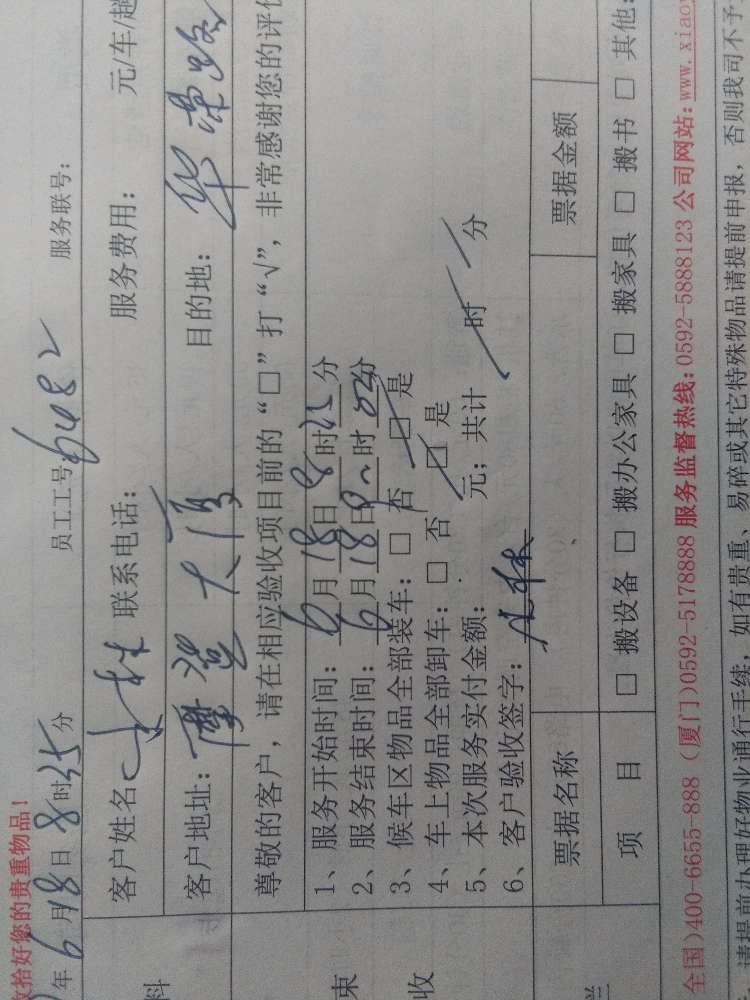 收拾好您的贵重物品!
年6月18日8时35分 员工工号:6482 服务联号:
客户姓名 林 联系电话: 服务费用: 元/车/趟
客户地址: 摩登大厦 目的地: 华荣路
尊敬的客户,请在相应验收项目前的“□”打“√”,非常感谢您的评价
1、服务开始时间: 6月18日8时35分
2、服务结束时间: 6月18日 时 分
3、候车区物品全部装车: □ 否 □ 是
4、车上物品全部卸车: □ 否 □ 是
5、本次服务实付金额: 元; 共计 时 分
6、客户验收签字:
票据名称 票据金额
项目 □ 搬设备 □ 搬办公家具 □ 搬家具 □ 搬书 □ 其他:
全国)400-6655-888 (厦门)0592-5178888 服务监督热线:0592-5888123 公司网站:www.xiaoy
请提前办理好物业通行手续, 如有贵重、易碎或其它特殊物品请提前申报, 否则我司不予
料
束
收